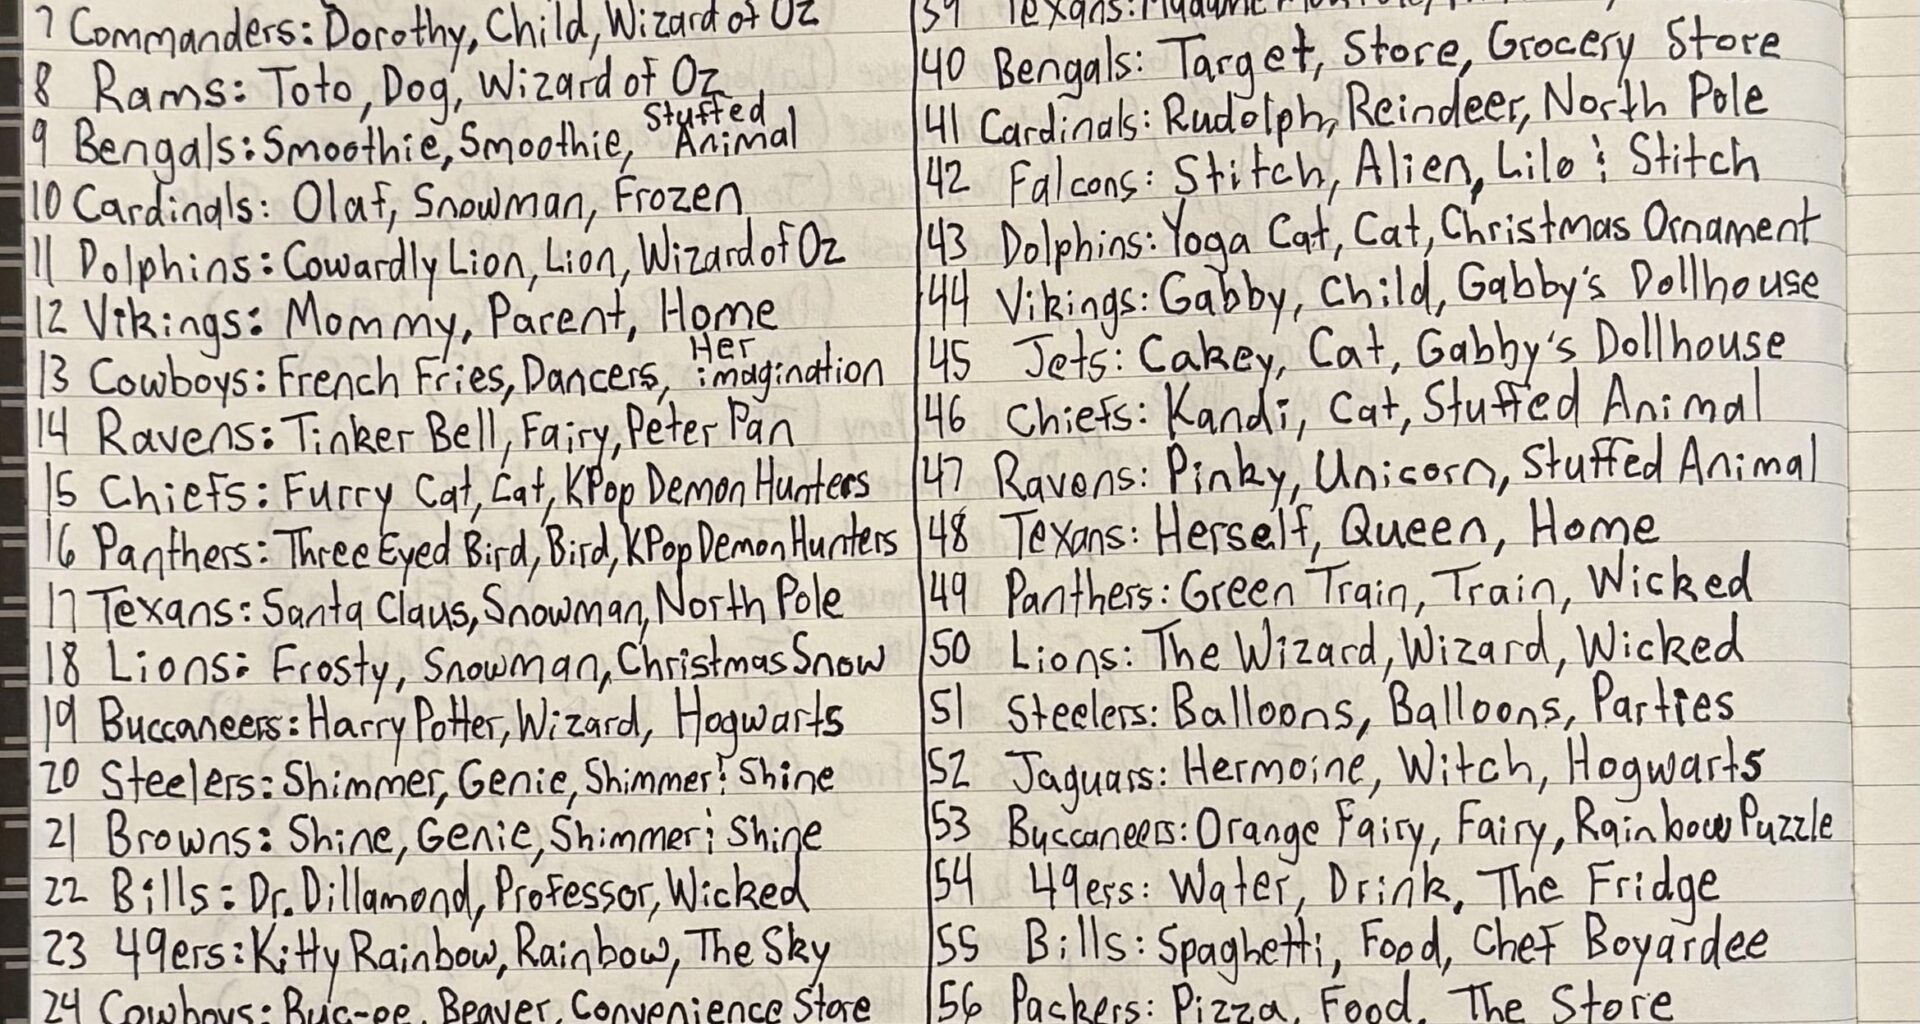 7 Commanders: Dorothy, Child, Wizard of Oz
8 Rams: Toto, Dog, Wizard of Oz
9 Bengals: Smoothie, Smoothie, Stuffed Animal
10 Cardinals: Olaf, Snowman, Frozen
11 Dolphins: Cowardly Lion, Lion, Wizard of Oz
12 Vikings: Mommy, Parent, Home
13 Cowboys: French Fries, Dancers, Her imagination
14 Ravens: Tinker Bell, Fairy, Peter Pan
15 Chiefs: Furry Cat, Cat, KPop Demon Hunters
16 Panthers: Three Eyed Bird, Bird, KPop Demon Hunters
17 Texans: Santa Claus, Snowman, North Pole
18 Lions: Frosty, Snowman, Christmas Snow
19 Buccaneers: Harry Potter, Wizard, Hogwarts
20 Steelers: Shimmer, Genie, Shimmer & Shine
21 Browns: Shine, Genie, Shimmer & Shine
22 Bills: Dr. Dillamond, Professor, Wicked
23 49ers: Kitty Rainbow, Rainbow, The Sky
24 Cowboys: Buc-ee, Beaver, Convenience Store
39 Texans:
40 Bengals: Target, Store, Grocery Store
41 Cardinals: Rudolph, Reindeer, North Pole
42 Falcons: Stitch, Alien, Lilo & Stitch
43 Dolphins: Yoga Cat, Cat, Christmas Ornament
44 Vikings: Gabby, Child, Gabby's Dollhouse
45 Jets: Cakey, Cat, Gabby's Dollhouse
46 Chiefs: Kandi, Cat, Stuffed Animal
47 Ravens: Pinky, Unicorn, Stuffed Animal
48 Texans: Herself, Queen, Home
49 Panthers: Green Train, Train, Wicked
50 Lions: The Wizard, Wizard, Wicked
51 Steelers: Balloons, Balloons, Parties
52 Jaguars: Hermoine, Witch, Hogwarts
53 Buccaneers: Orange Fairy, Fairy, Rainbow Puzzle
54 49ers: Water, Drink, The Fridge
55 Bills: Spaghetti, Food, Chef Boyardee
56 Packers: Pizza, Food, The Store